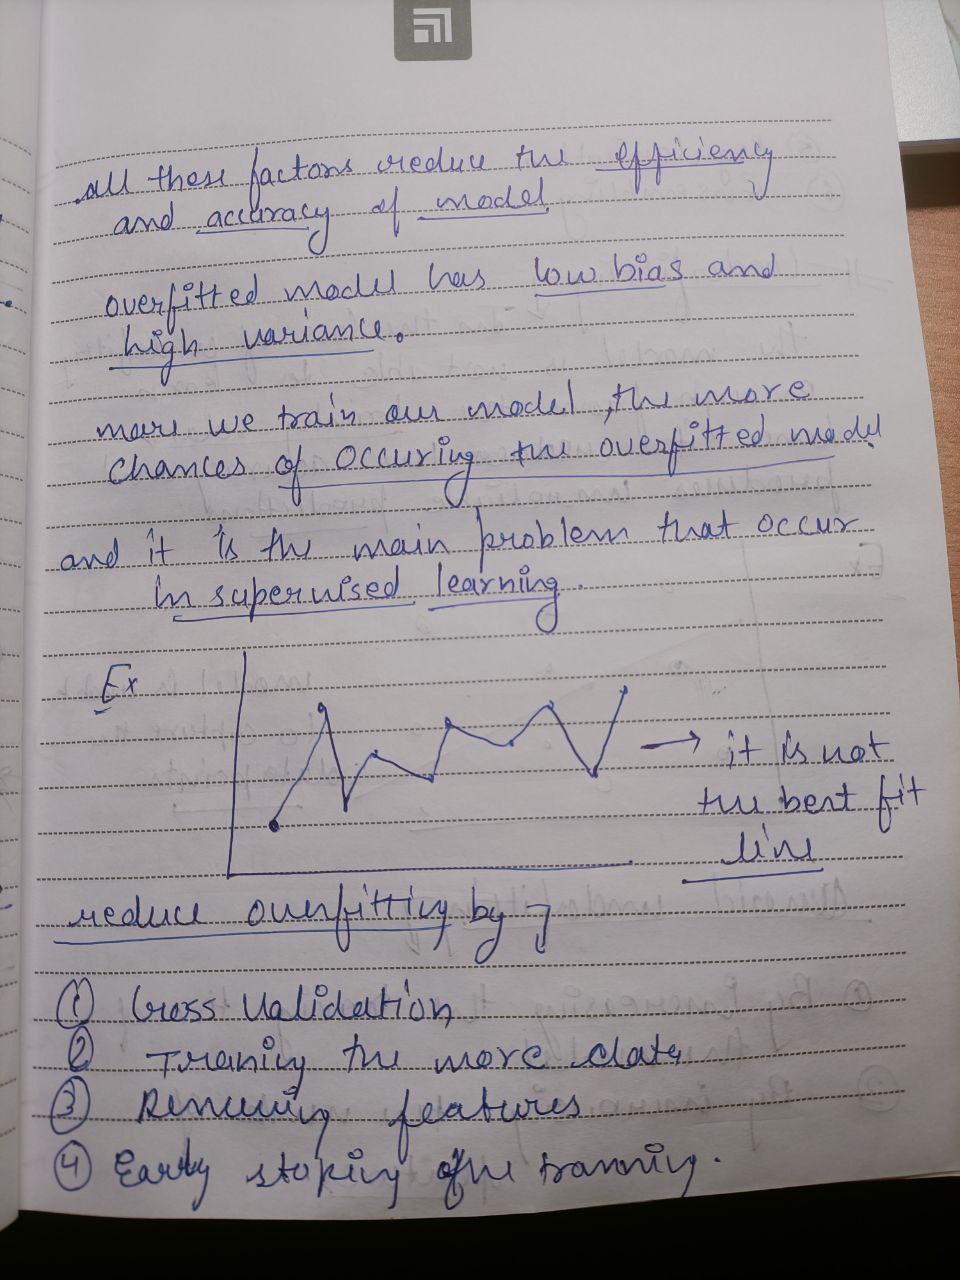 all these factors reduce the efficiency
and accuracy of model
overfitted model has low bias and
high variance.
more we train our model, the more
chances of occuring the overfitted model
and it is the main problem that occur
in supervised learning.
Ex
→ it is not
the best fit
line
reduce overfitting by
① Cross Validation
② Traning the more data
③ Removing features
④ Early stoping of the tranning.